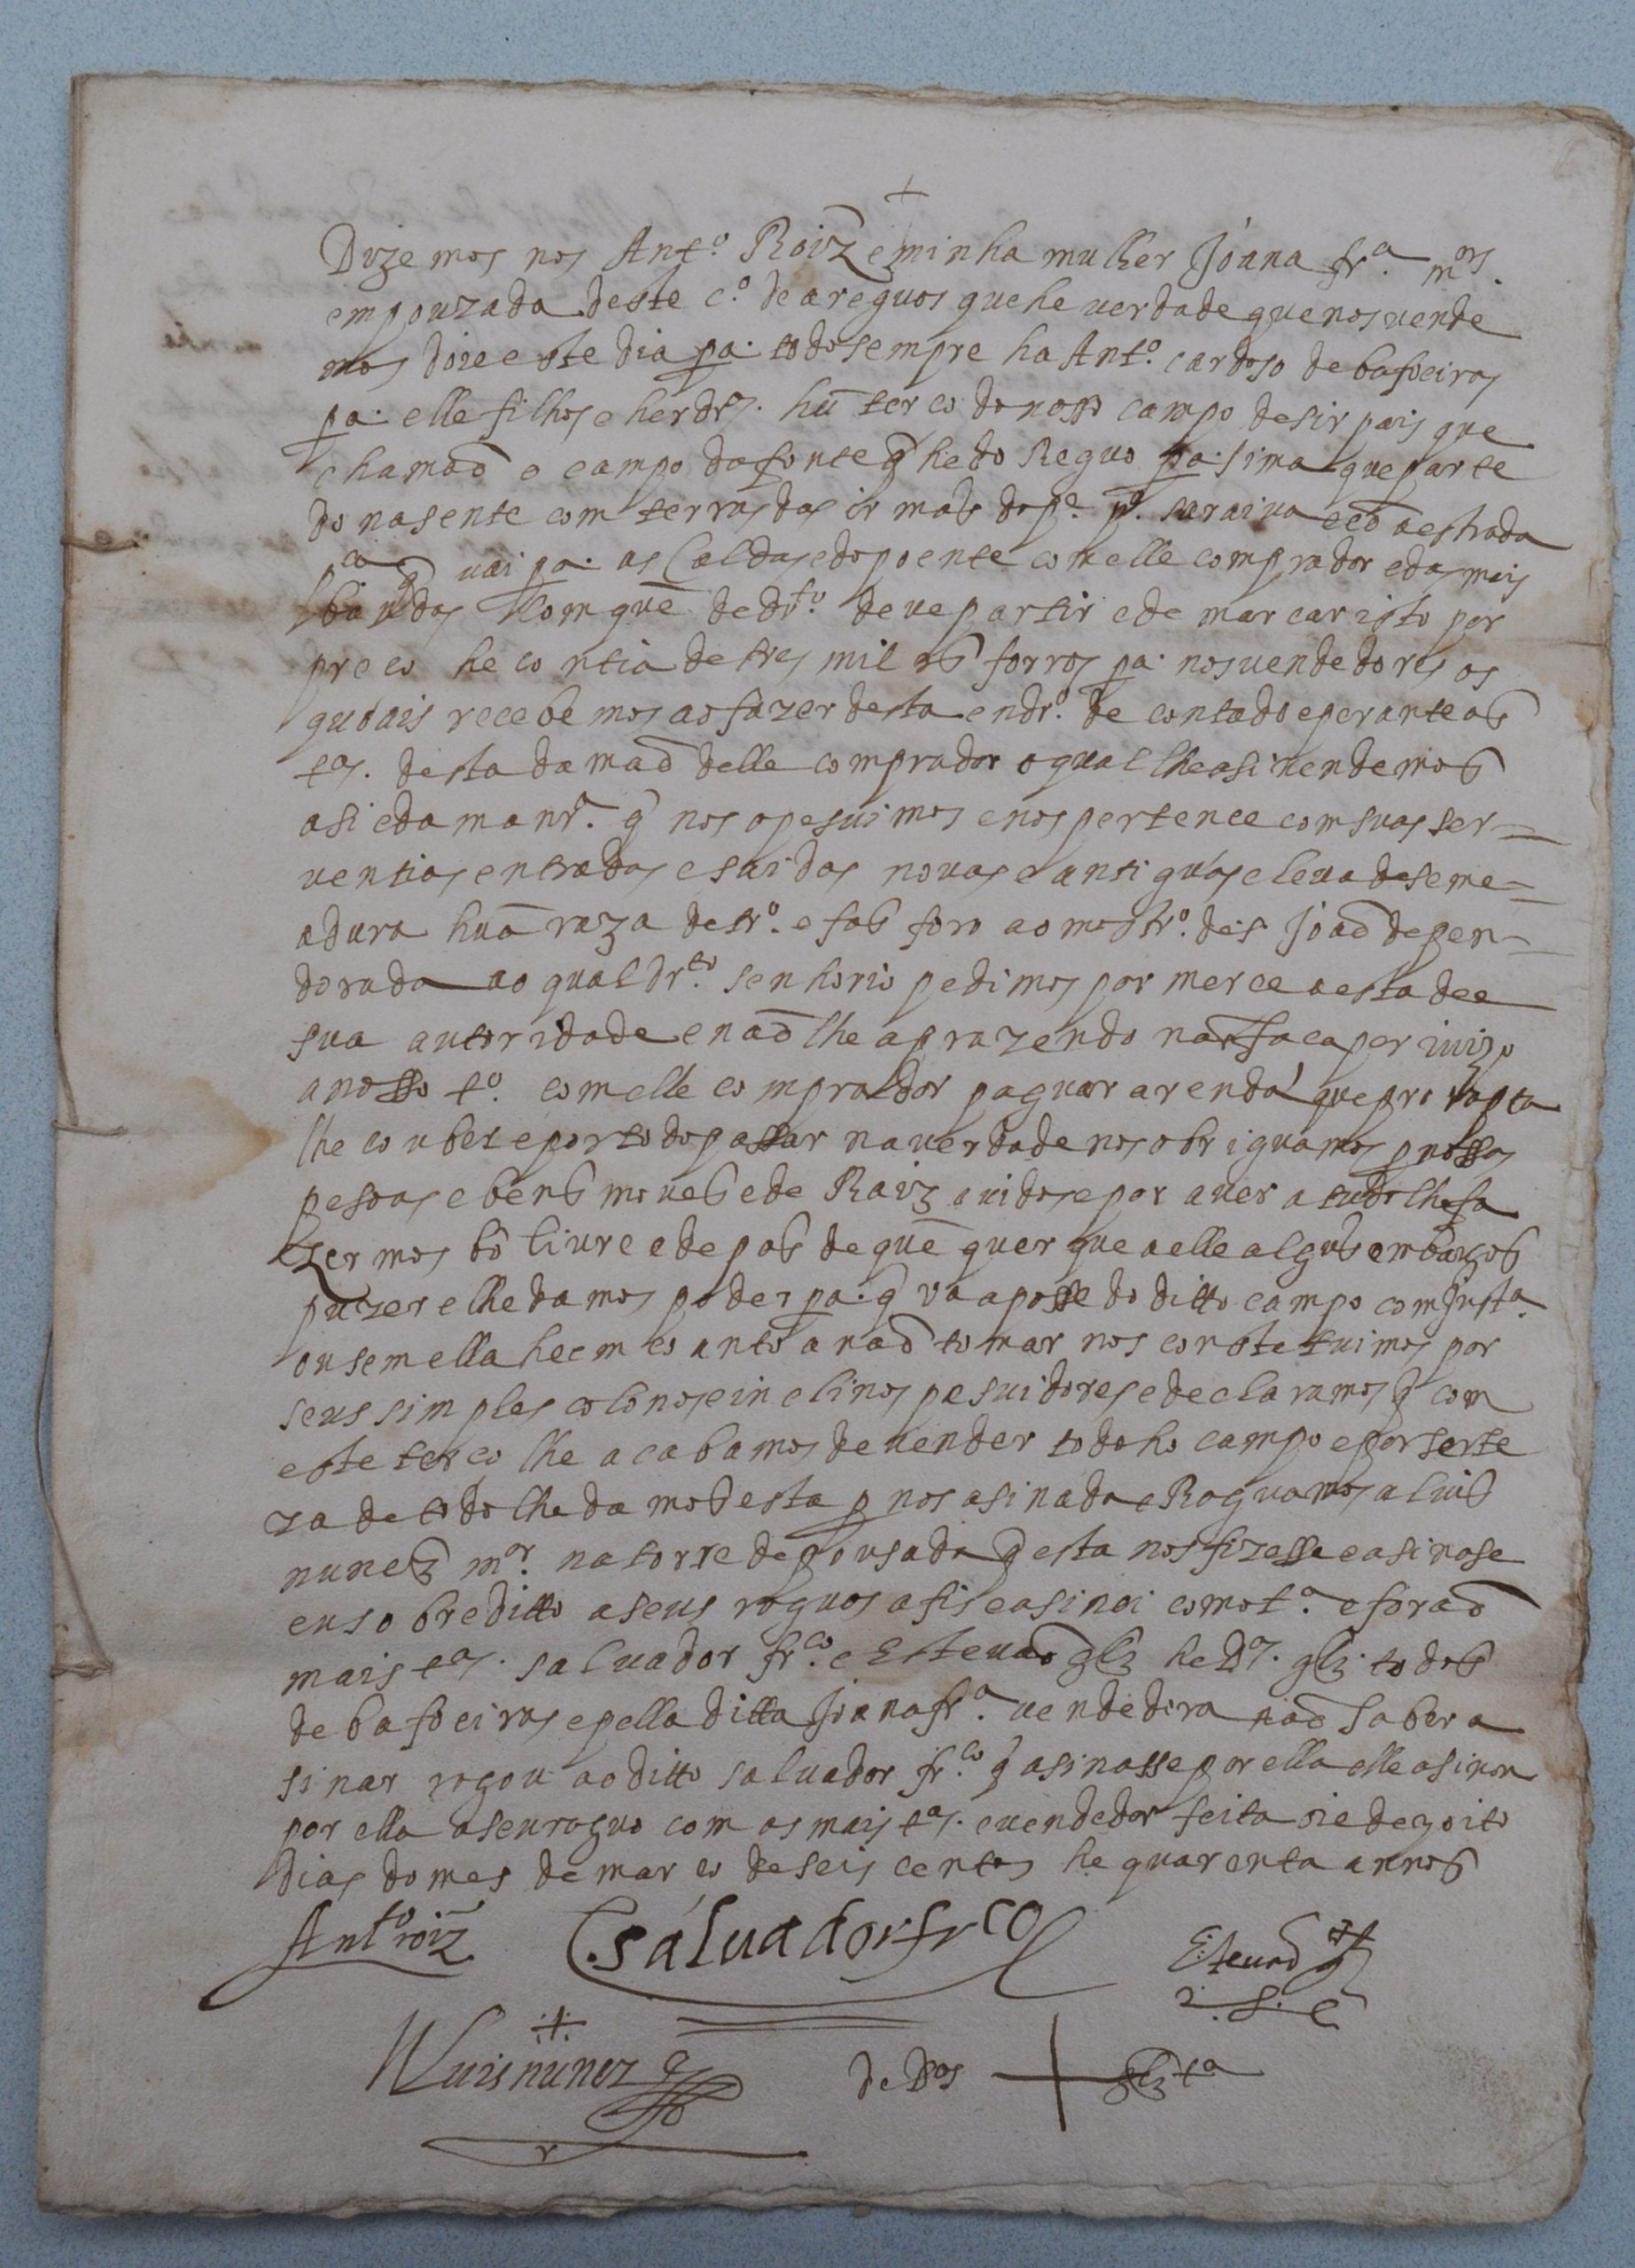 Dizemos nos Ant.º Roiz e minha mulher Joana fr.ª m.res
em pouzada deste c.º de areguos que he verdade que nos vende
mos doie este dia pa. todo sempre ha Ant.º cardoso de bafoeiras
pa. elle filhos e herdr.os hũ terco do nosso campo de sir pais que
chamaõ o campo da fonte q̃ he do Reguo pa. sima que parte
do nasente com terras das irmas do p.e p.º saraiva e cõ a estrada
p.ca q̃ vai pa. as Caldas e do poente com elle comprador e das mais
bandas com quẽ de dr.to deve partir e de marcar isto por
preco he contia de tres mil rs forros pa. nos vendedores os
quoais recebemos ao fazer desta en dr.º de contado e perante as
t.as desta da maõ delle comprador o qual lhe asi vendemos
asi e da manr.ª q̃ nos o pesuimos e nos pertence com suas ser=
ventias entradas e saidas novas e antiguas e leva de seme=
adura huã raza de tr.º e fas foro ao mostr.º de s. Joaõ de pen=
dorada ao qual dr.to senhorio pedimos por merce a esta dee
sua autoridade e naõ lhe aprazendo naõ faca perivizo
a nosso t.º com elle comprador paguar a renda que pro rapta
lhe couber e por todo pasar na verdade nos obriguamos p nossas
pesoas e bens moves e de Raiz avidos e por aver a tudo lhe fa
zermos bõ livre e de pas de quẽ quer que a elle algũs embargos
puzer e lhe damos poder pa. q̃ va a posse do ditto campo com just.ª
ou sem ella he em coanto a naõ tomar nos constetuimos por
seus simples colonos e inclinos pesuidores e declaramos q̃ com
este terco lhe acabamos de vender todo ho campo e por serte
za de todo lhe damos esta p nos asinada e Roguamos a luis
nunes m.or na torre de pousada q̃ esta nos fizesse e asinase
eu sobreditto a seus roguos a fis e asinei como t.ª e foraõ
mais t.as salvador fr.co e Estevaõ glz he D.os glz todos
de bafoeiras e pella ditta Joana fr.ª vendedora naõ saber a
sinar rogou ao ditto salvador fr.co q̃ asinasse por ella elle asinou
por ella a seu roguo com as mais t.as e vendedor feita oie dezoito
dias do mes de marco de seis centos he quarenta annos
Ant.º roiz salvador fr.co Estevaõ
Luis nunez
de D.os + glz t.ª